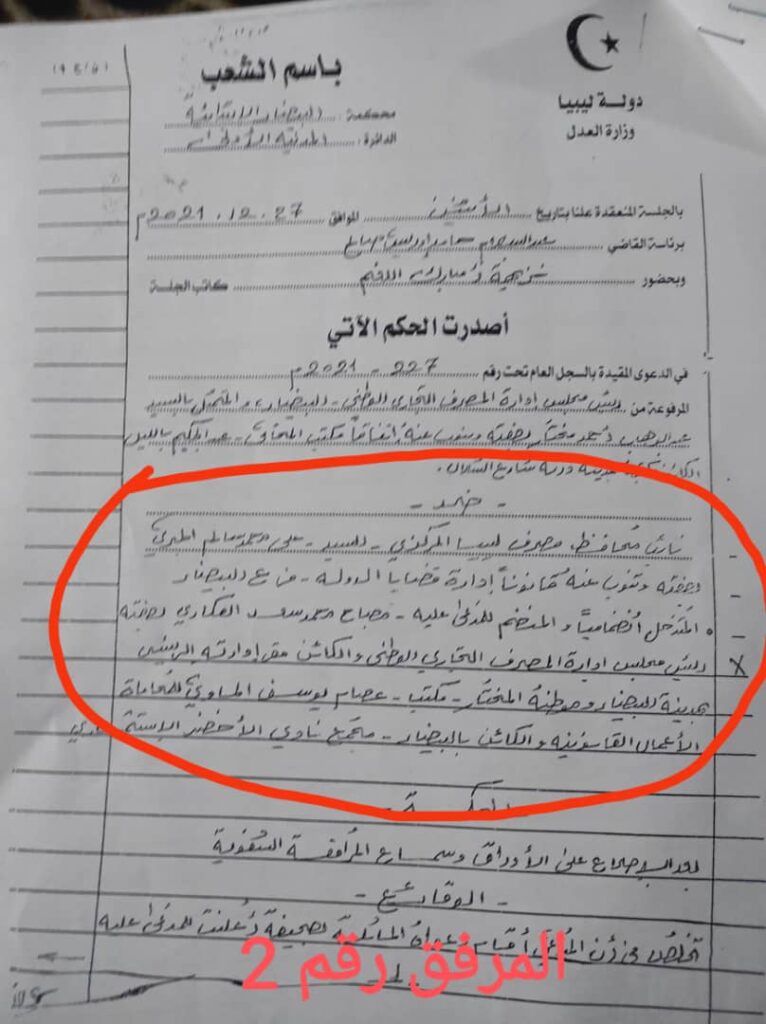 دولة ليبيا
وزارة العدل
باسم الشعب
محكمة: البيضاء الابتدائية
الدائرة: المدنية الأولى
بالجلسة المنعقدة علنا بتاريخ الأثنين الموافق 27.12.2021م
برئاسة القاضي عبدالسلام حامد إدريس سالم
وبحضور مبارك كاتب الجلسة
أصدرت الحكم الآتي
في الدعوى المقيدة بالسجل العام تحت رقم 227 - 2021م
المرفوعة من رئيس مجلس إدارة المصرف التجاري الوطني - البيضاء، والمتمثل بالسيد
عبدالوهاب أحمد مختار بصفته وينوب عنه إتفاقاً مكتب المحامي - عبدالحكيم بالليل
الكائن بمدينة درنة شارع
- ضد -
نائب محافظ مصرف ليبيا المركزي - للسيد - على محمد سالم الحبري
بصفته وتنوب عنه قانوناً إدارة قضايا الدولة - فرع البيضاء
المتدخل أنضمامياً والمنضم للمدعى عليه - مصباح محمد سعد العكاري بصفته
رئيس مجلس إدارة المصرف التجاري الوطني والكائن مقر إدارته الرئيس
بمدينة البيضاء وموطنه المختار - مكتب - عصام يوسف الماوي للمحاماة
الأعمال القانونية والكائن بالبيضاء - مجمع نادي الأخضر
المحكمة
بعد الإطلاع على الأوراق وسماع المرافعة الشفوية
- الوقائع -
تخلص في أن المدعي أقام دعواه الماثلة بصحيفة أعلنت للمدعى عليه
المرفق رقم 2